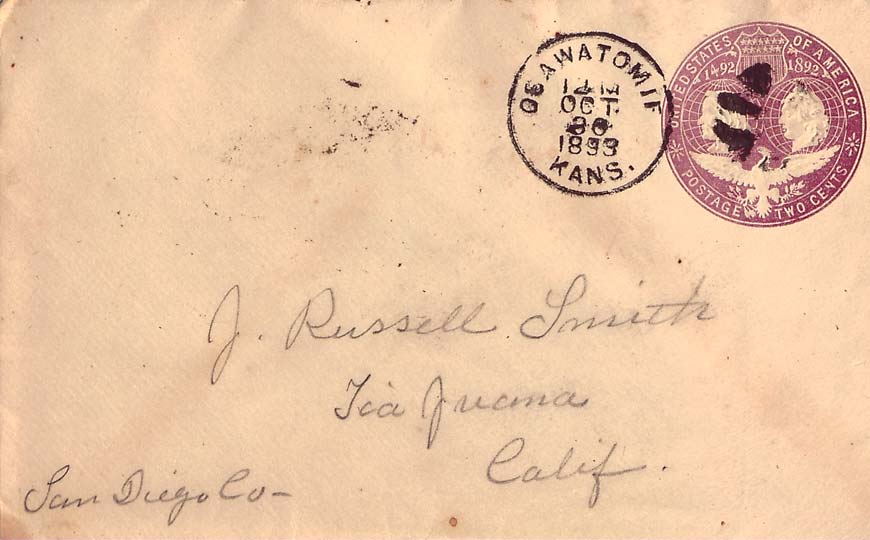 OSAWATOMIE
12 M
OCT
30
1893
KANS.
UNITED STATES OF AMERICA
1492 1892
POSTAGE TWO CENTS
J. Russell Smith
Tia Juana
Calif.
San Diego Co-